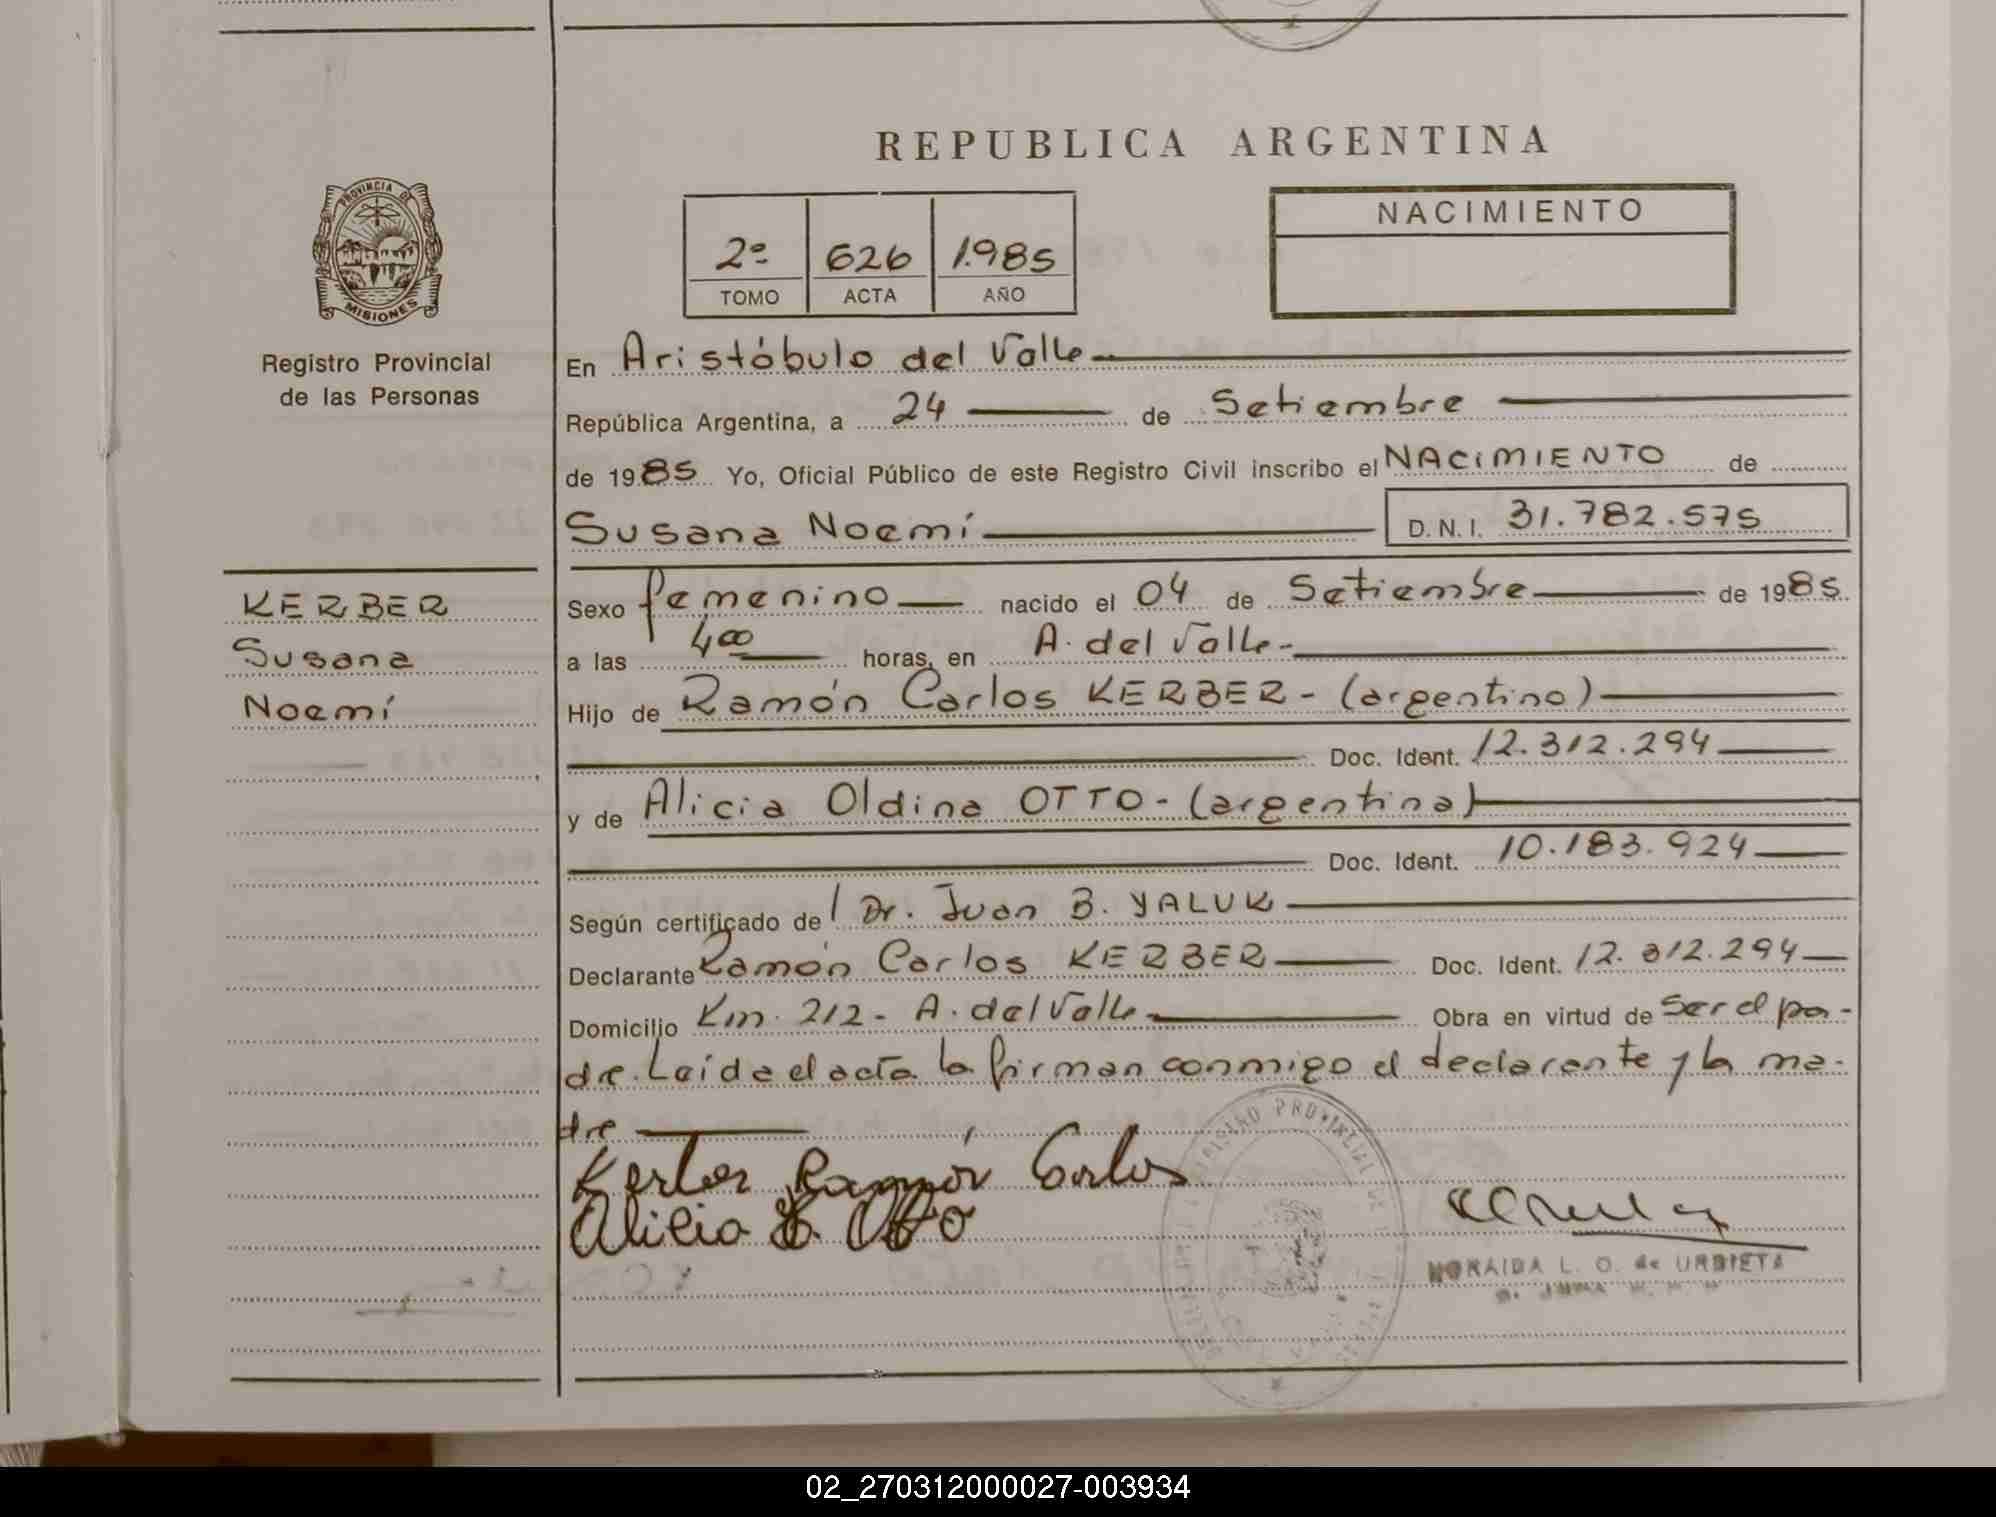 REPUBLICA ARGENTINA
PROVINCIA DE
MISIONES
Registro Provincial
de las Personas
2º 626 1.985
TOMO ACTA AÑO
NACIMIENTO
En Aristóbulo del Valle
República Argentina, a 24 de Setiembre
de 1985 Yo, Oficial Público de este Registro Civil inscribo el NACIMIENTO de
Susana Noemí D.N.I. 31.782.575
KERBER
Susana
Noemí
Sexo femenino nacido el 04 de Setiembre de 1985
a las 4⁰⁰ horas, en A. del Valle-
Hijo de Ramón Carlos KERBER - (argentino)
Doc. Ident. 12.312.294
y de Alicia Oldina OTTO - (argentina)
Doc. Ident. 10.183.924
Según certificado de Dr. Juan B. YALUK
Declarante Ramón Carlos KERBER Doc. Ident. 12.312.294
Domicilio Km. 212 - A. del Valle Obra en virtud de ser el pa-
dre. Leída el acta la firman conmigo el declarante y la ma-
dre
Kerber Ramón Carlos
Alicia O. Otto
NORAIDA L. O. de URBIETA
02_270312000027-003934